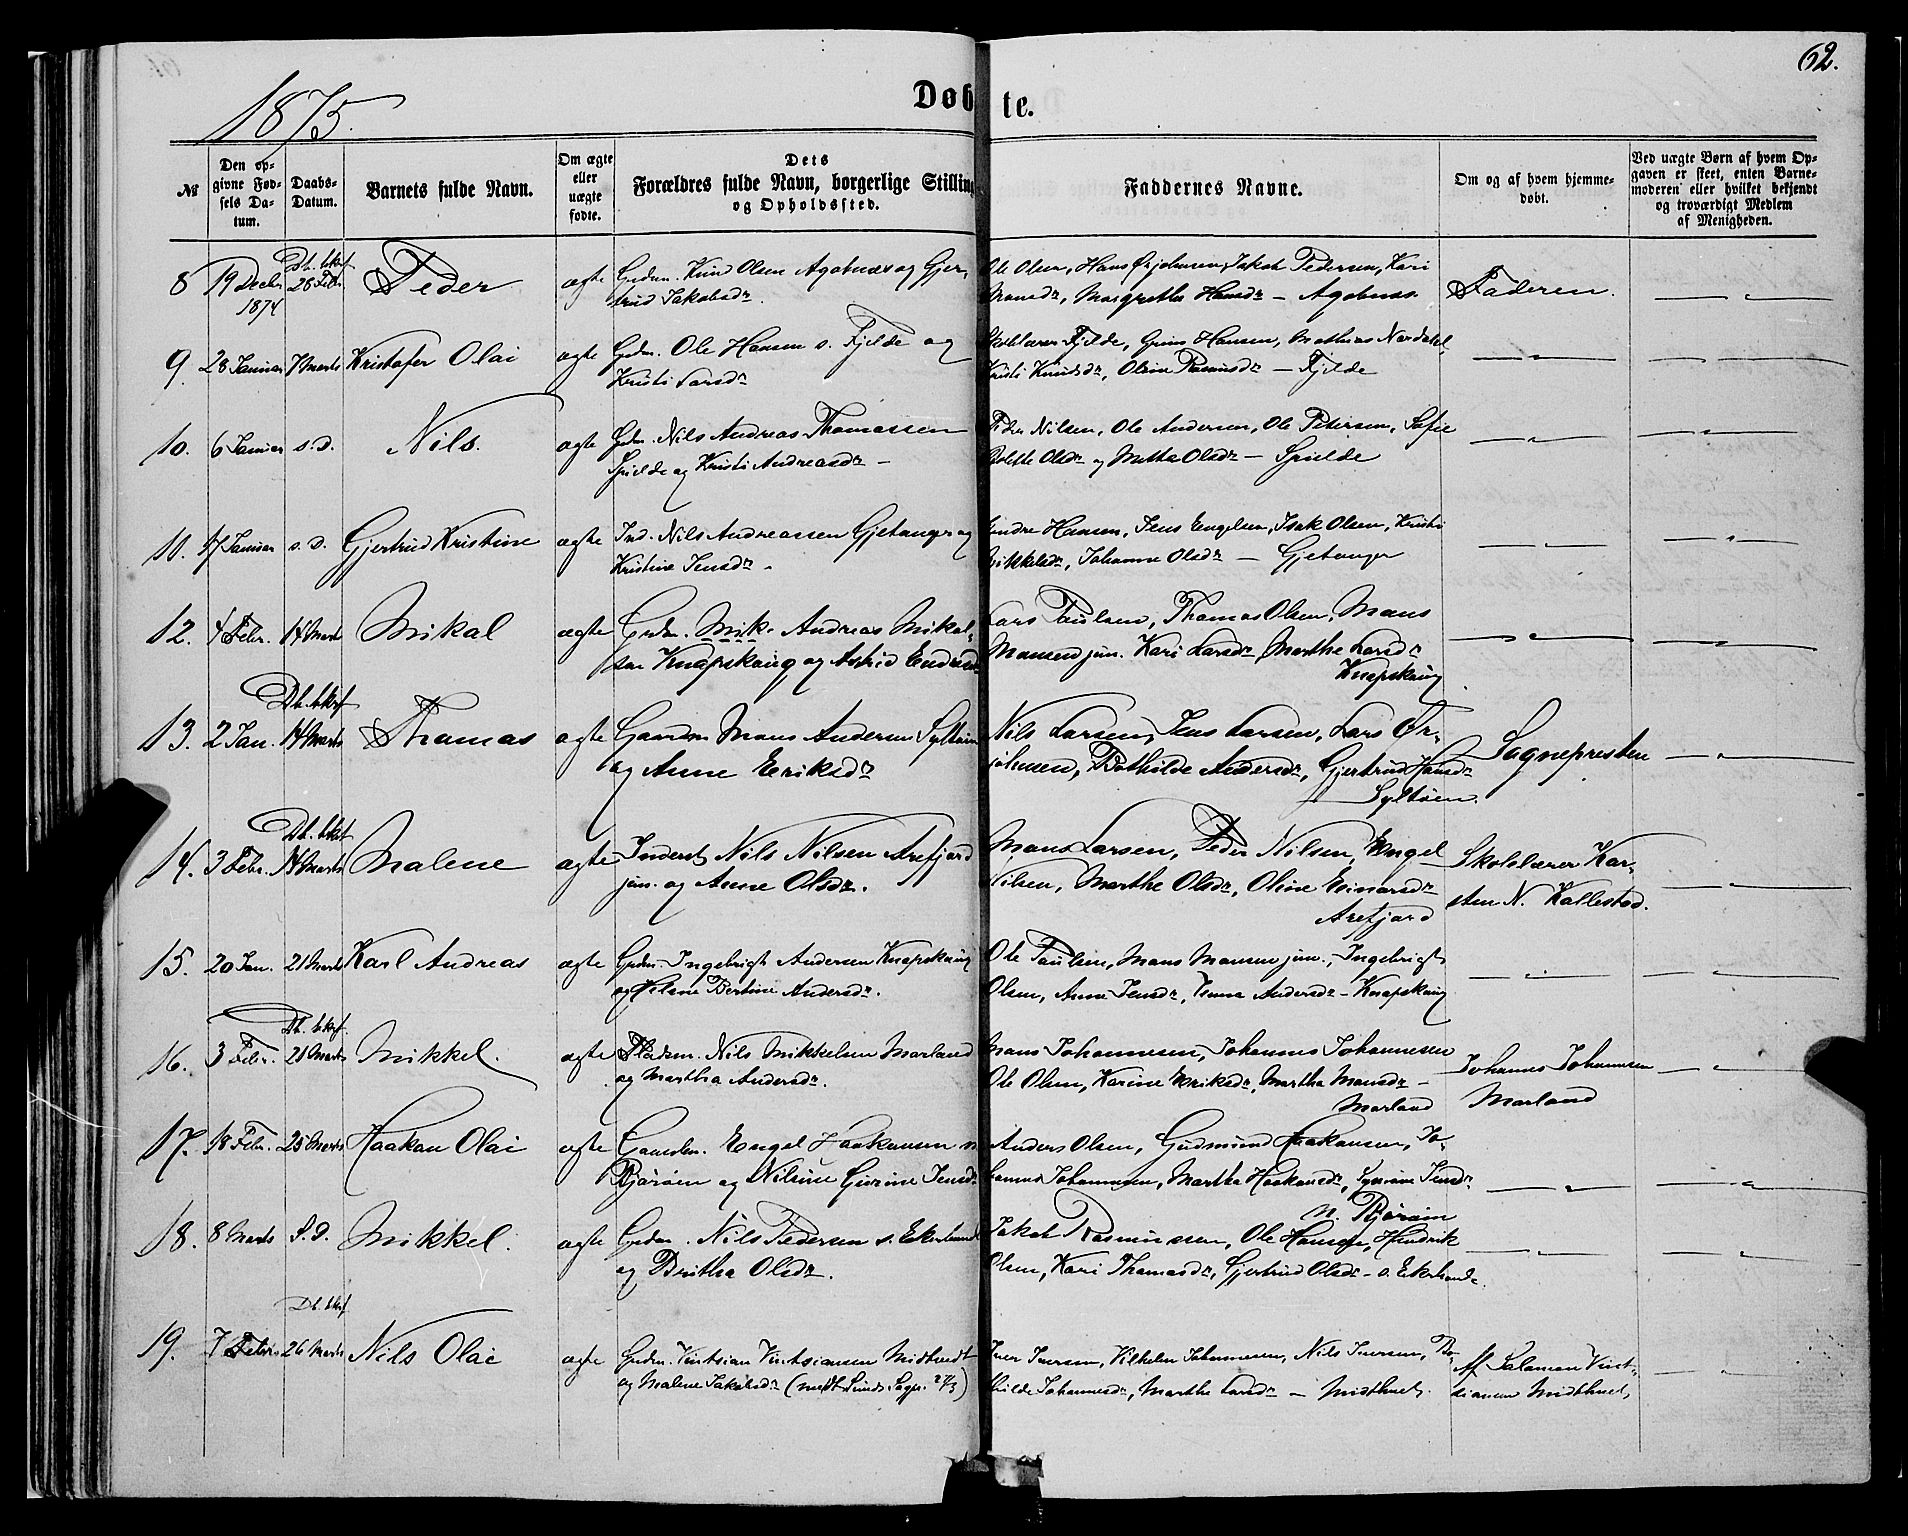 62.
1875.
Døbte.
№
Den opgivne Fødsels Datum.
Daabs-Datum.
Barnets fulde Navn.
Om ægte eller uægte fødte.
Dets Forældres fulde Navn, borgerlige Stilling og Opholdssted.
Faddernes Navne.
Om og af hvem hjemmedøbt.
Ved uægte Børn af hvem Opgaven er skeet, enten Barnemoderen eller hvilket bekjendt og troværdigt Medlem af Menigheden.
8 19 Decbr 1874 Db. bkrf 28 Febr. Peder ægte Grdm. Knud Olsen Agotnæs og Gjertrud Jakobsdr. Ole Olsen, Hans Ørjohnsen, Jakob Pedersen, Kari Monsdr, Margrethe Hansdr – Agotnæs. Faderen.
9. 28 Januar 7 Marts Kristofer Olai ægte Grdm. Ole Hansen s. Fjelde og Kristi Larsdr Skolelærer Fjelde, Hansen, Mathias Nordahl, Kristi Knudsdr, Oline Rasmusdr – Fjelde
10. 6 Januar s. D. Nils. ægte Grdm. Nils Andreas Thomassen Spilde og Kristi Andreasdr – Peder Nilsen, Ole Andersen, Ole Petersen, Sofie Bolette Olsdr og Mette Olsdr – Spilde
11. 17 Januar s. D. Gjertrud Kristine ægte Ind. Nils Andreassen Gjetanger og Kristine Jensdr. Endre Hansen, Jens Engelsen, Isak Olsen, Kristi Mikkelsdr, Johanne Olsdr – Gjetanger
12. 4 Febr. 14 Marts Mikal ægte Grdm. Mik. Andreas Mikalsen Knapskoug og Astrid Endresdr Lars Paulsen, Thomas Olsen, Mons Monsen jun. Kari Larsdr, Marthe Larsdr Knapskoug
13. 2 Jan. Db. bkrf 14 Marts Thomas ægte Gaardm. Mons Andersen Syltøen og Anne Eriksdr Nils Larsen, Jens Larsen, Lars Ørjohnsen, Bothilde Andersdr, Gjertrud Hansdr Syltøen. Sognepresten
14. 3 Febr. Db. bkrf 14 Marts Malene ægte Inderst Nils Nilsen Arefjord jun. og Anne Olsdr. Mons Larsen, Peder Nilsen, Engel Nilsen, Marthe Olsdr, Oline Einarsdr Arefjord Skolelærer Karsten N. Kallestad.
15. 20 Jan. 21 Marts Karl Andreas ægte Grdm. Ingebrigt Andersen Knapskoug og Helene Bertine Andersdr. Ole Paulsen, Mons Monsen jun., Ingebrigt Olsen, Anne Jensdr, Andersdr – Knapskoug
16. 3 Febr. Db. bkrf. 21 Marts Mikkel. ægte Pladsm. Nils Mikkelsen Morland og Martha Andersdr. Mons Johannesen, Johannes Johannessen Ole Olsen, Karine Eriksdr, Martha Monsdr – Morland Johannes Johannesen Morland
17. 18 Febr. 25 Marts Haakon Olai ægte Gaardm. Engel Haakonsen n. Bjørøen og Nilsine Jensdr Anders Olsen, Gudmund Haakonsen, Johannes Johannesen, Martha Haakonsdr, Synnøve Jensdr n. Bjørøen
18. 8 Marts S. D. Mikkel. ægte Grdm. Nils Pedersen s. Ekerhovd og Britha Olsdr. Jakob Rasmussen, Ole Hansen, Hendrik Olsen, Kari Thomasdr, Gjertrud Olsdr – s. Ekerhovde.
19. 7 Febr. Db. bkrf 26 Marts Nils Olai ægte Grdm. Kristian Kristiansen Midtvedt og Malene Jakobsdr (medt Sunds Sogn. 27/3) Iver Iversen, Vilhelm Johannesen, Nils Iversen, Bothilde Johannesdr, Marthe Larsdr – Midthvedt. Af Salamon Kristiansen Midthvedt,